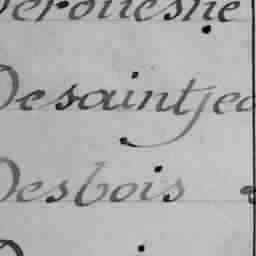 Derouesne
Desaintjea
Desbois